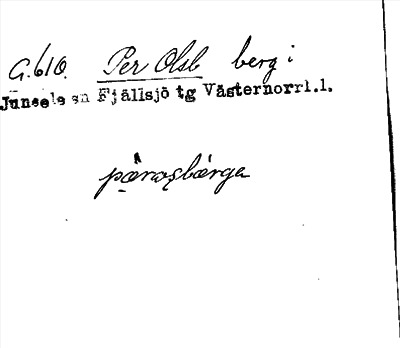 G.610. Per Olsb berg i
Junsele sn Fjällsjö tg Västernorrl.l.
pærosbærga